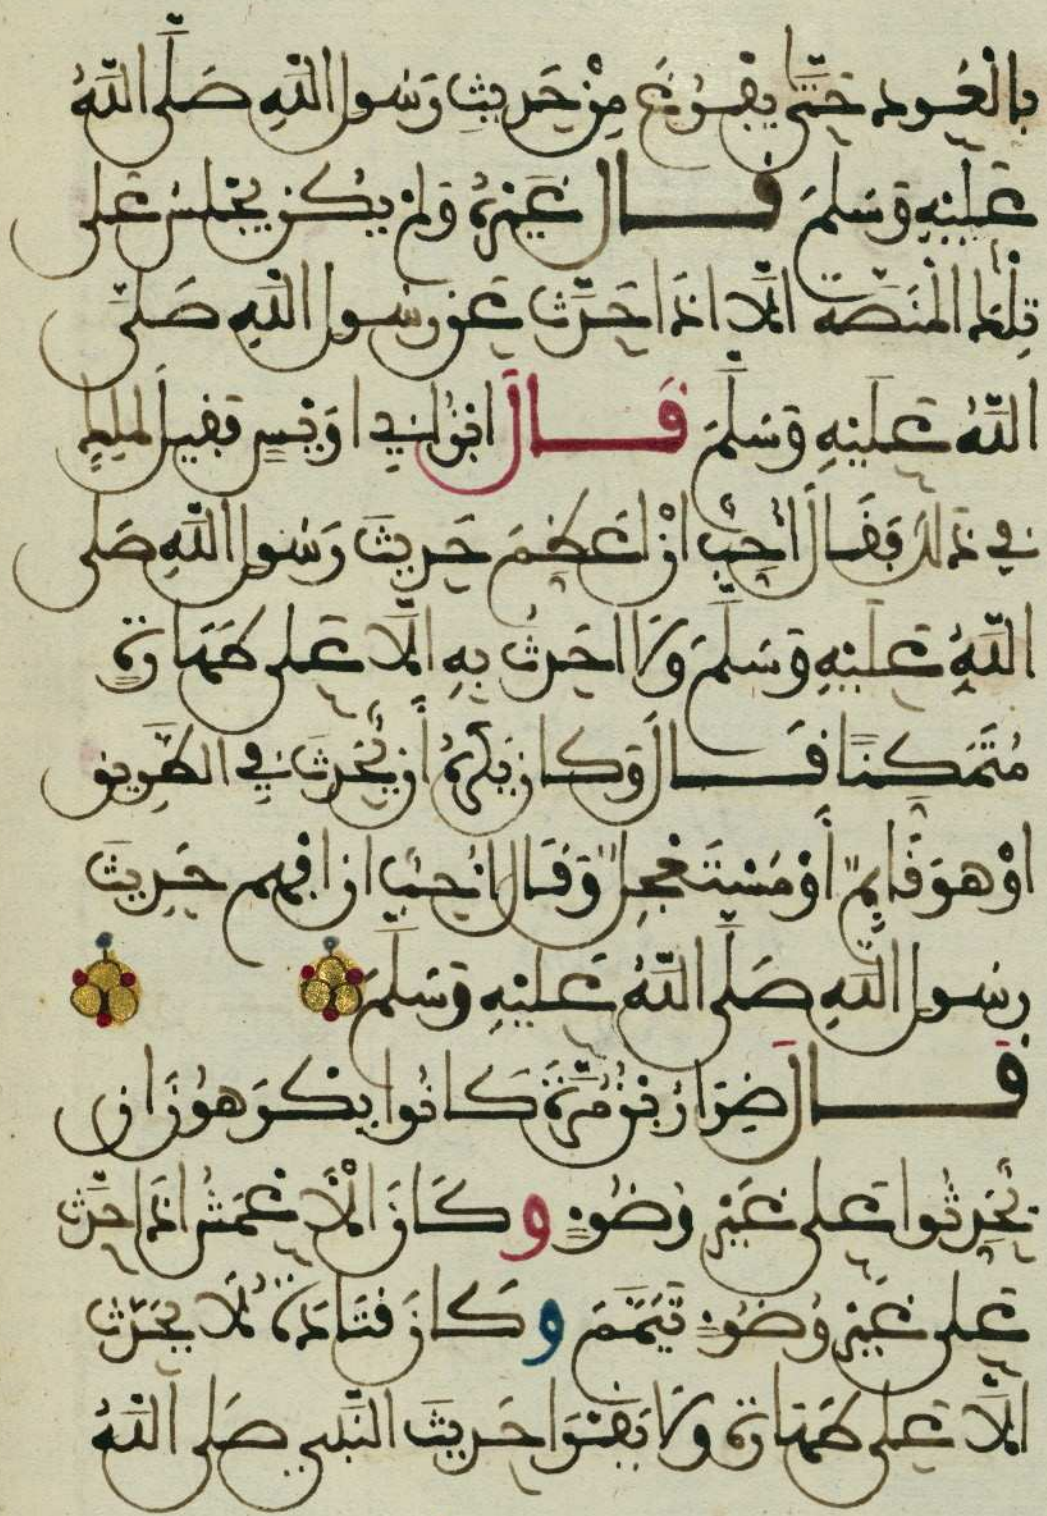 بِالْعُودِ حَتَّى يَفْرُغَ مِنْ حَدِيثِ رَسُولِ اللَّهِ صَلَّى اللَّهُ
عَلَيْهِ وَسَلَّمَ قَالَ غَيْرُهُ وَلَمْ يَكُنْ يَجْلِسُ عَلَى
تِلْكَ الْمَنَصَّةِ إِلَّا إِذَا حَدَّثَ عَنْ رَسُولِ اللَّهِ صَلَّى
اللَّهُ عَلَيْهِ وَسَلَّمَ قَالَ ابْنُ أَبِي أُوَيْسٍ فَقِيلَ لِمَلِكٍ
فِي ذَلِكَ فَقَالَ أُحِبُّ أَنْ أُعَظِّمَ حَدِيثَ رَسُولِ اللَّهِ صَلَّى
اللَّهُ عَلَيْهِ وَسَلَّمَ وَلَا أُحَدِّثُ بِهِ إِلَّا عَلَى طَهَارَةٍ
مُتَمَكِّنًا قَالَ وَكَانَ يَكْرَهُ أَنْ يُحَدِّثَ فِي الطَّرِيقِ
أَوْ هُوَ قَائِمٌ أَوْ مُسْتَعْجِلٌ وَقَالَ أُحِبُّ أَنْ أُفَهِّمَ حَدِيثَ
رَسُولِ اللَّهِ صَلَّى اللَّهُ عَلَيْهِ وَسَلَّمَ
قَالَ ضِرَارُ بْنُ مُرَّةَ كَانُوا يَكْرَهُونَ أَنْ
يُحَدِّثُوا عَلَى غَيْرِ وُضُوءٍ وَكَانَ الْأَعْمَشُ إِذَا حَدَّثَ
عَلَى غَيْرِ وُضُوءٍ تَيَمَّمَ وَكَانَ قَتَادَةُ لَا يُحَدِّثُ
إِلَّا عَلَى طَهَارَةٍ وَلَا يَقْرَأُ حَدِيثَ النَّبِيِّ صَلَّى اللَّهُ